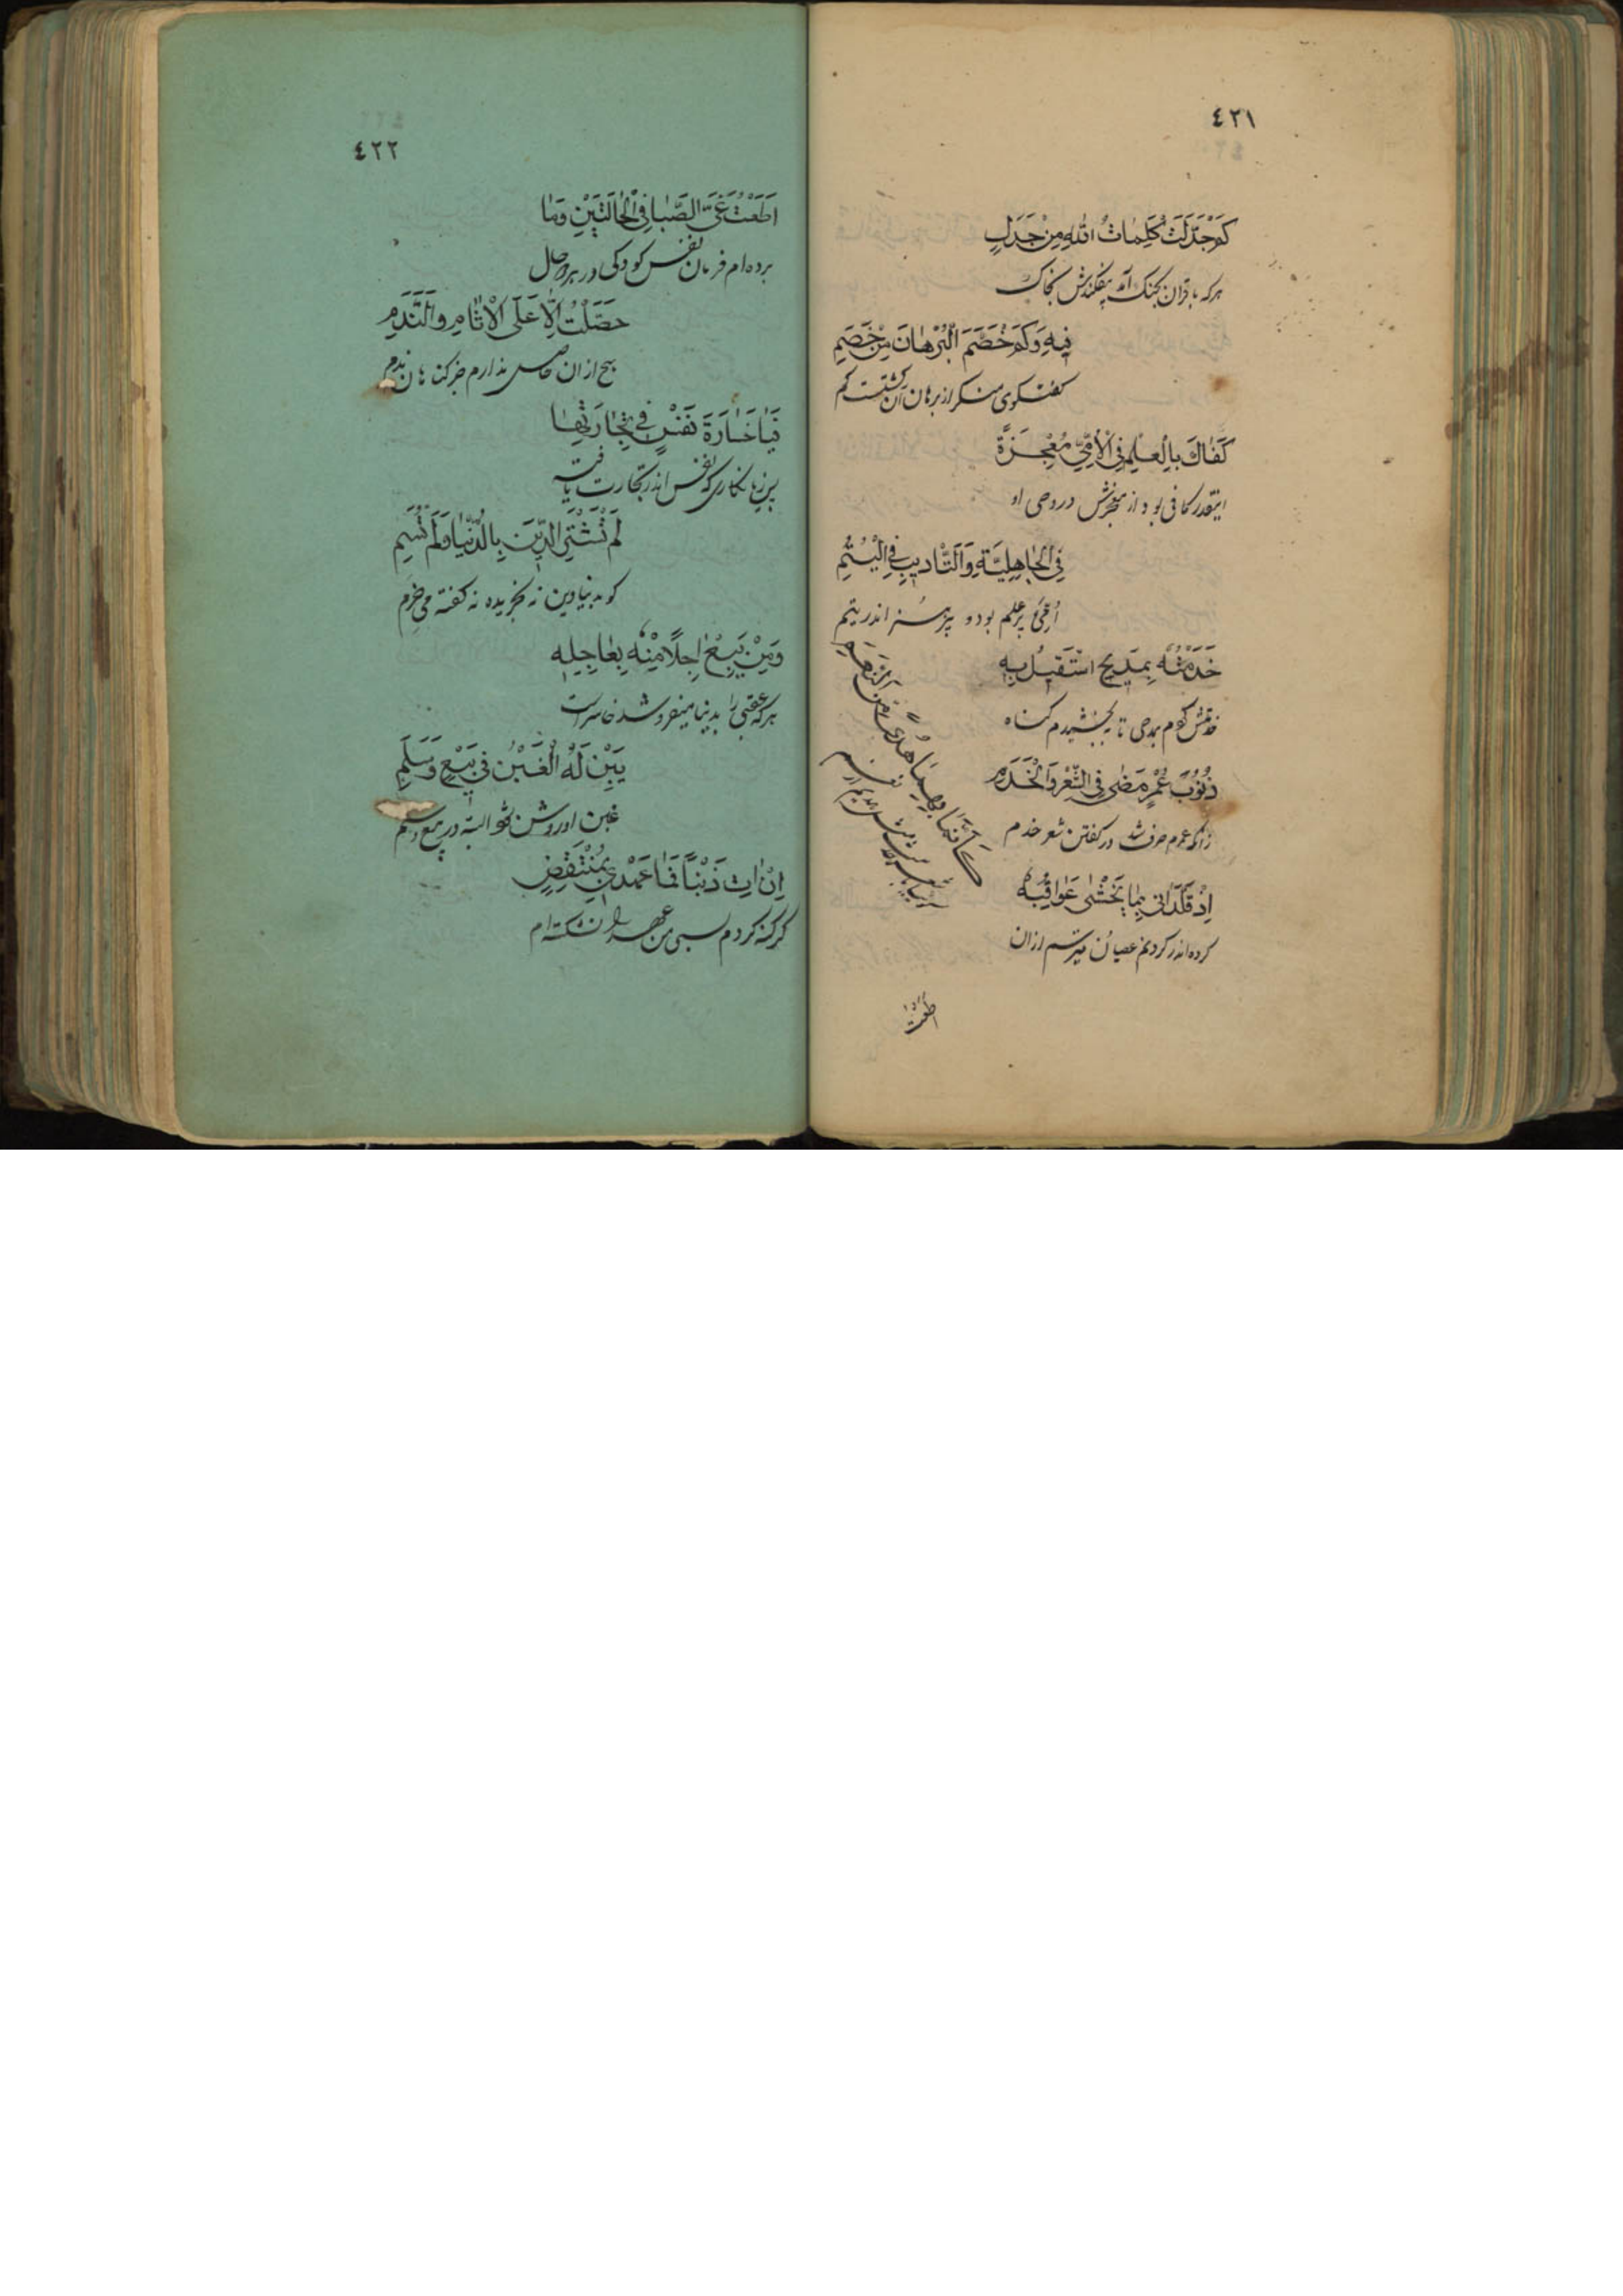 ٤٢١
كَمْ جَدَّلَتْ كَلِمَاتُ اللّٰهِ مِنْ جَدَلٍ
هرکه با قران بجنک آمد بیفکندش بخاک
فِيهِ وَكَمْ خَصَّمَ الْبُرْهَانُ مِنْ خَصِمٍ
کفتکوی منکر از برهان آن کشتست کم
كَفَاكَ بِالْعِلْمِ فِي الْأُمِّيِّ مُعْجِزَةً
اینقدر کافی بود از معجزش در وحی او
فِي الْجَاهِلِيَّةِ وَالتَّأْدِيبِ فِي الْيُتُمِ
اُمّیی پر علم بود و پرهنر اندر یتم
خَدَمْتُهُ بِمَدِيحٍ اسْتَقِيلُ بِهِ
خدمتش کردم بمدحی تا ببخشیدم کناه
ذُنُوبَ عُمْرٍ مَضَىٰ فِي الشِّعْرِ وَالْخَدَمِ
زانکه عمرم صرف شد در کفتن شعر و خدم
إِذْ قَلَّدَانِيَ مَا يُخْشَىٰ عَوَاقِبُهُ
کرده اندر کردنم عصیان میترسم ازان
كَأَنَّنِي بِهِمَا هَدْيٌ مِنَ النَّعَمِ
اطعت
٤٢٢
اَطَعْتُ غَيَّ الصِّبَا فِي الْحَالَتَيْنِ وَمَا
برده‌ام فرمان نفس کودکی در هر دو حال
حَصَلْتُ إِلَّا عَلَى الْاٰثَامِ وَالنَّدَمِ
هیچ ازان حاصل ندارم جز کناهان و ندم
فَيَا خَسَارَةَ نَفْسٍ فِي تِجَارَتِهَا
پس زیانکاری که نفس اندر تجارت یافته
لَمْ تَشْتَرِ الدِّينَ بِالدُّنْيَا وَلَمْ تَسُمِ
کو بدنیا دین نه بخریده نه کفته می‌خرم
وَمَنْ يَبِعْ اٰجِلًا مِنْهُ بِعَاجِلِهِ
هرکه عقبی را بدنیا میفروشد خاسر است
يَبِنْ لَهُ الْغَبْنُ فِي بَيْعٍ وَسَلَمِ
غبن او روشن شود البته در بیع و سلم
إِنْ اٰتِ ذَنْبًا فَمَا عَهْدِي بِمُنْتَقِضٍ
کر کنه کردم بسی من عهد را نشکسته‌ام